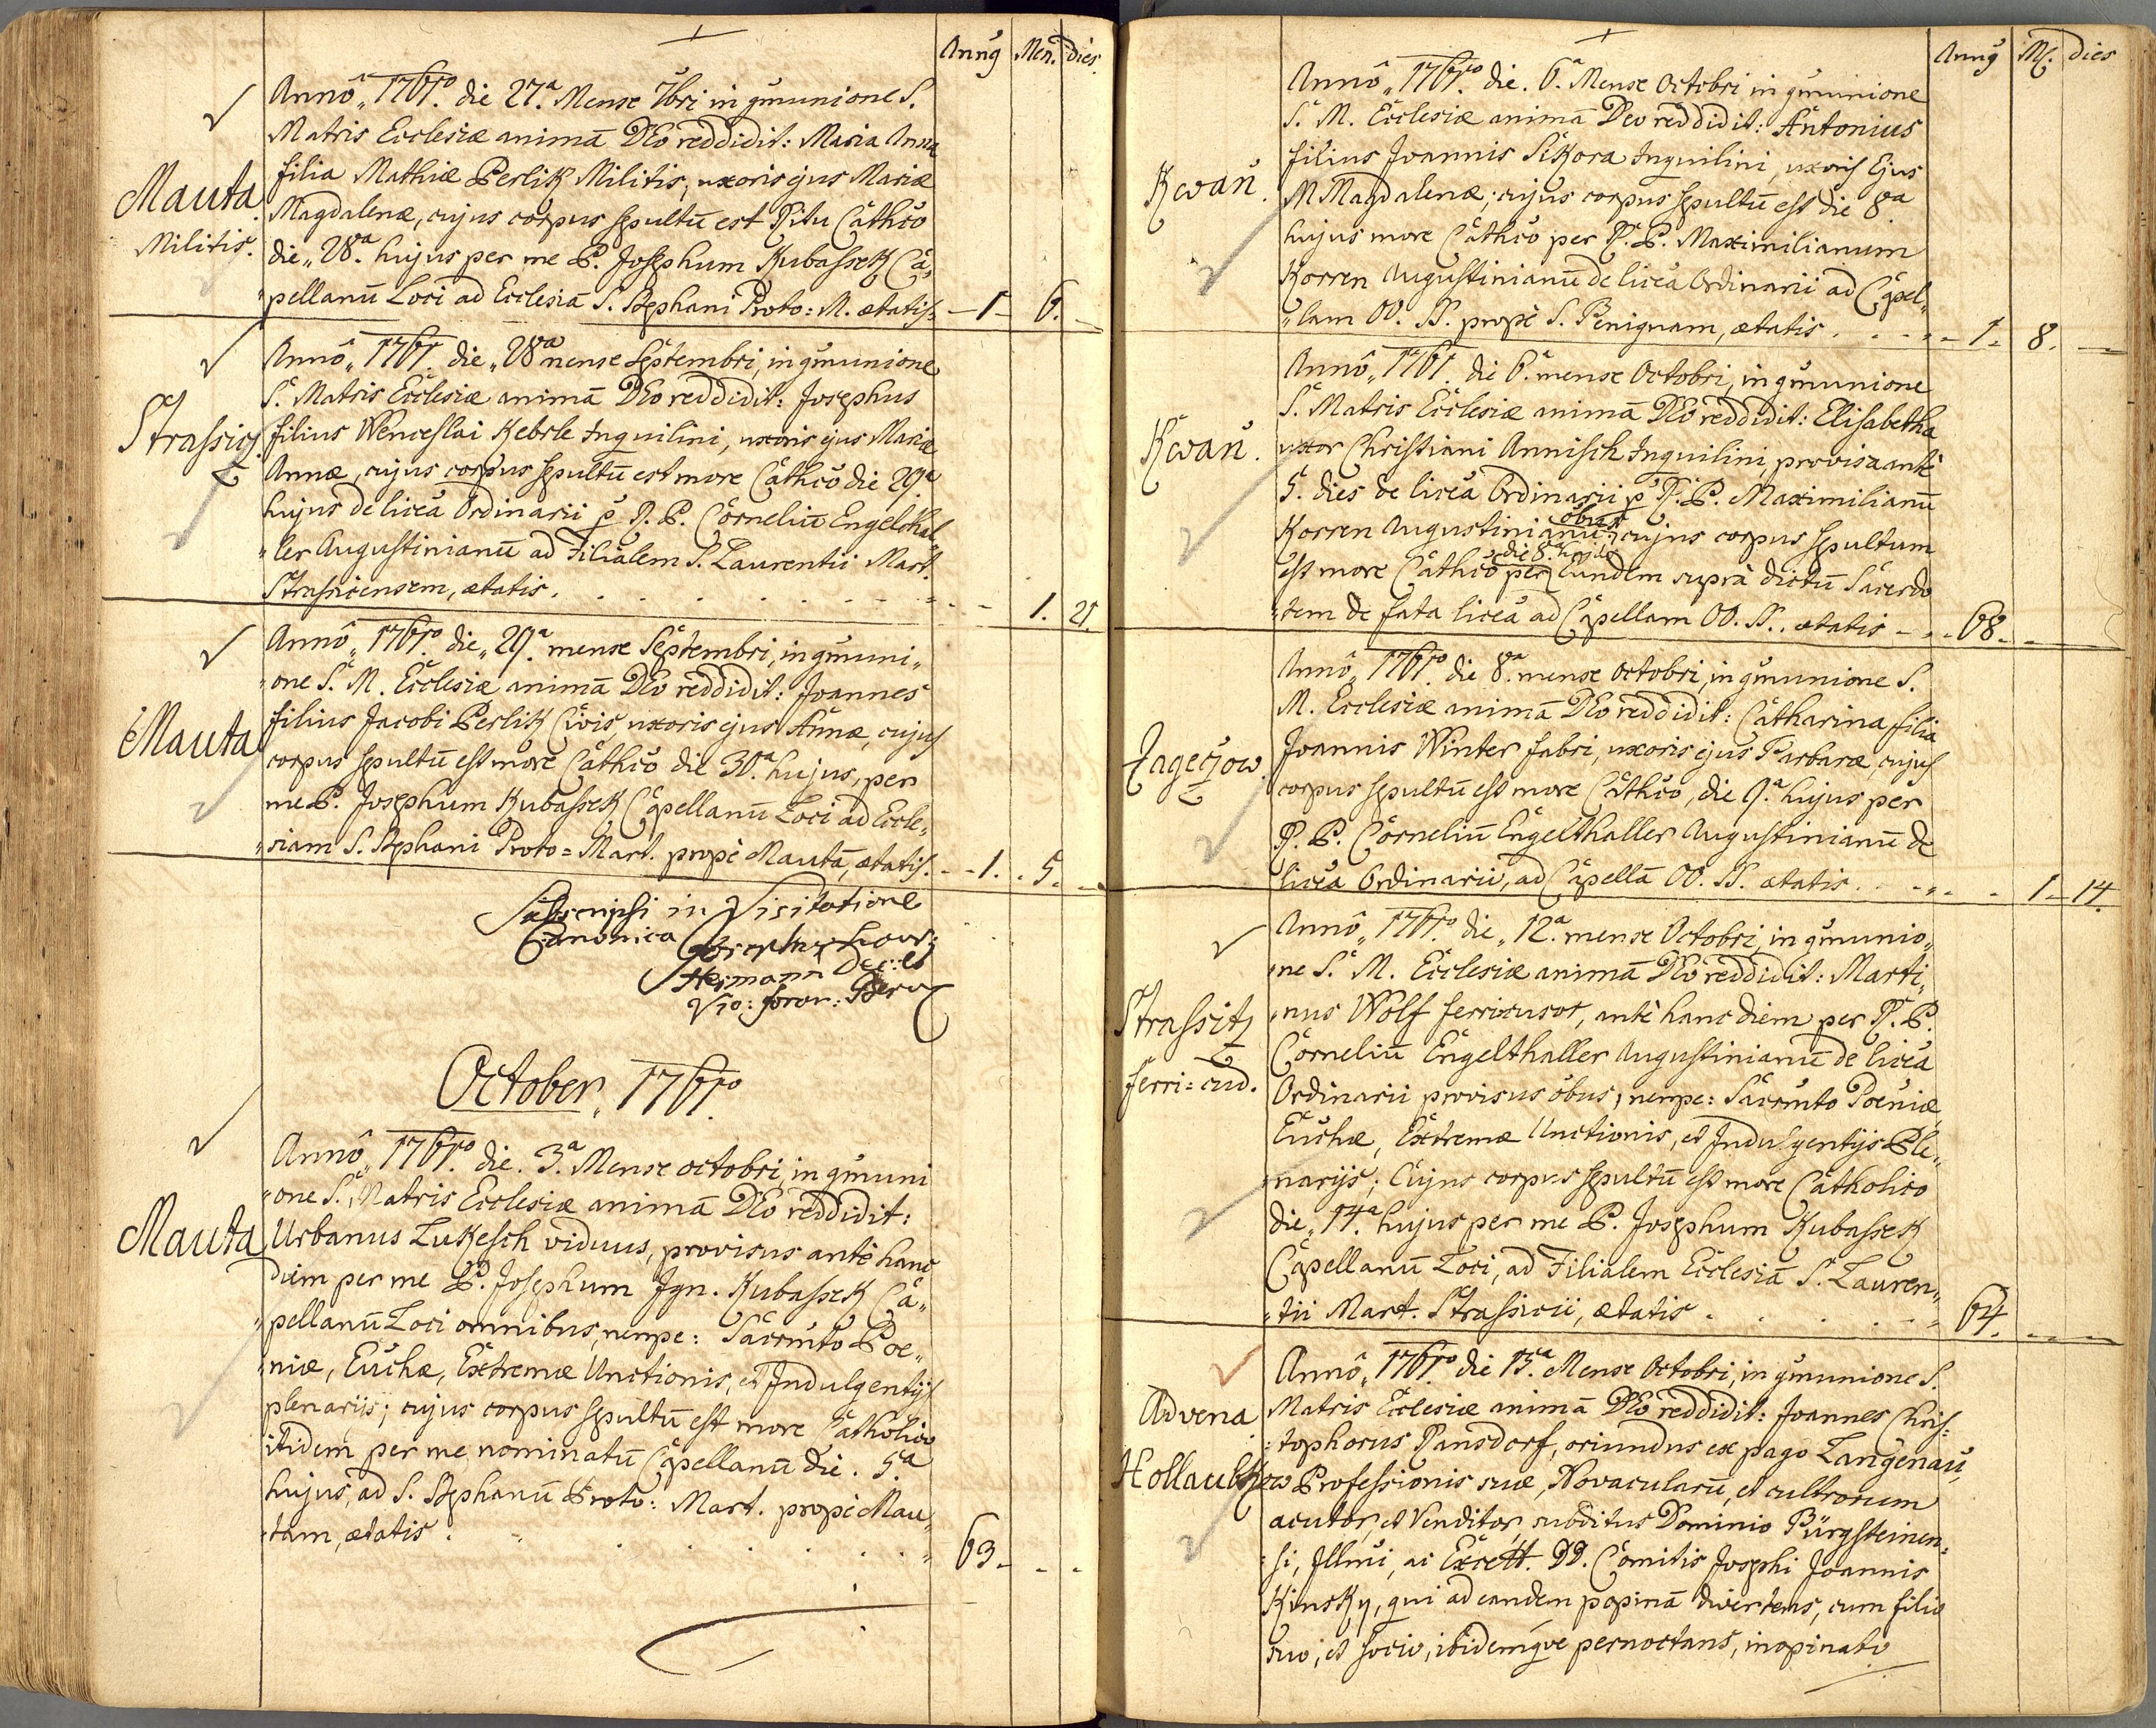 Annꝰ Men. dies.
Annô„ 1761mo. die 27.a Mense 7bri in ҫmunione S.
Matris Ecclesiæ animā DEo reddidit: Maria Anna
Mauta filia Mathiæ Perlik Militis, uxoris ejus Mariæ
Militis. Magdalenæ, cujus corpus sepultū est Ritu Cathco
die„ 28.a hujus per me P. Josephum Kubassek Ca„
„pellanū Loci ad Ecclesiā S. Stephani Proto: M. ætatis 1 6.
Annô„ 1761. die„ 28a mense Septembri, in ҫmunione
S. Matris Ecclesiæ animā DEo reddidit: Josephus
Strassicz filius Wenceslai Kebrle Inquilini, uxoris ejus Mariæ
Annæ, cujus corpus sepultū est more Cathco die 29a
hujus de licā Ordinarii p R. P. Corneliū Engelthal„
„ler Augustinianū ad Filialem S. Laurentii Mart.
Strassicensem, ætatis. . . . . 1. 21.
Annô„ 1761mo. die„ 29.a mense Septembri, in ҫmuni„
„one S. M. Ecclesiæ animā DEo reddidit: Joannes
Mauta filius Jacobi Perlik Civis, uxoris ejus Annæ, cujus
corpus sepultū est more Cathco die 30.a hujus, per
me P. Josephum Kubassek Capellanū Loci ad Eccle„
„siam S. Stephani Proto= Mart. propè Mautā, ætatis. 1. 5.
Subscripsi in Visitatione
Canonica
Hermann
Vic: foran:
October„ 1761mo.
Annô„ 1761mo. die. 3.a Mense octobri, in ҫmuni
„one S. Matris Ecclesiæ animā DEo reddidit:
Mauta Urbanus Lukesch viduus, provisus antè hanc
diem per me P. Josephum Ign. Kubassek Ca„
„pellanū Loci omnibus, nempe: Sacrmto Poe„
„niæ, Euchæ, Extremæ Unctionis, et Indulgentijs
plenariis; cujus corpus sepultū est more Catholico
itidem per me nominatū Capellanū die. 5.a
hujus, ad S. Stephanū Proto: Mart. propè Mau„
„tam, ætatis. . . . . 63.
Annꝰ M. dies
Annô„ 1761mo. die. 6.a Mense Octobri in ҫmunione
S. M. Ecclesiæ animā Deo reddidit: Antonius
Kwaň. filius Joannis Sikora Inquilini, uxoris Ejus
M Magdalenæ; cujus corpus sepultū est die 8.a
hujus more Cathco per R. P. Maximilianum
Korren Augustinianū de licā Ordinarii ad Capel„
„lam OO. SS. propè S. Benignam, ætatis. . . 1. 8.
Annô„ 1761. die 6.a mense Octobri, in ҫmunione
S. Matris Ecclesiæ animā DEo reddidit: Elisabetha
Kwaň. uxor Christiani Annisch Inquilini provisa antè
5. dies de licā Ordinarii p R. P. Maximilianū
Korren Augustinianū obus, cujus corpus sepultum
est more Cathco die 8.a hujus per Eundem suprà dictū Sacerdo
„tem de fata licā ad Capellam OO. SS. ætatis 68.
Annô„ 1761mo. die 8.a mense Octobri, in ҫmunione S.
M. Ecclesiæ animā DEo reddidit: Catharina filia
Zageczow. Joannis Winter fabri, uxoris ejus Barbaræ, cujus
corpus sepultū est more Cathco, die 9.a hujus per
R. P. Corneliū Engelthaller Augustinianū de
licā Ordinarii, ad Capellā OO. SS. ætatis. . . 1 14.
Annô„ 1761mo. die„ 12.a mense Octobri, in ҫmunio„
„ne S. M. Ecclesiæ animā DEo reddidit: Marti„
Strassitz „nus Wolf ferricusor, antè hanc diem per R. P.
Corneliū Engelthaller Augustinianū de licā
ferri=cud. Ordinarii provisus obus, nempe: Sacrmto Poeniæ,
Euchæ, Extremæ Unctionis, et Indulgentijs Ple„
„narijs; Cujus corpus sepultū est more Catholico
die„ 14.a hujus per me P. Josephum Kubassek
Capellanū Loci, ad Filialem Ecclesiā S. Lauren„
„tii Mart. Strassicii, ætatis . . . 64.
Annô„ 1761mo. die 13.a Mense Octobri, in ҫmunione S.
Advena Matris Ecclesiæ animā DEo reddidit: Joannes Chris=
=tophorus Ransdorf, oriundus ex pago Langenau,
Hollaubkow Professionis suæ, Novacularū, et cultrorum
acutor, et Venditor, subditus Dominio Bürgsteinen=
=si, Illmi, ac Excell. DD. Comitis Josephi Joannis
Kinsky, qui ad eandem popinā divertens, cum filio
suo, et socio, ibidemque pernoctans, inopinato